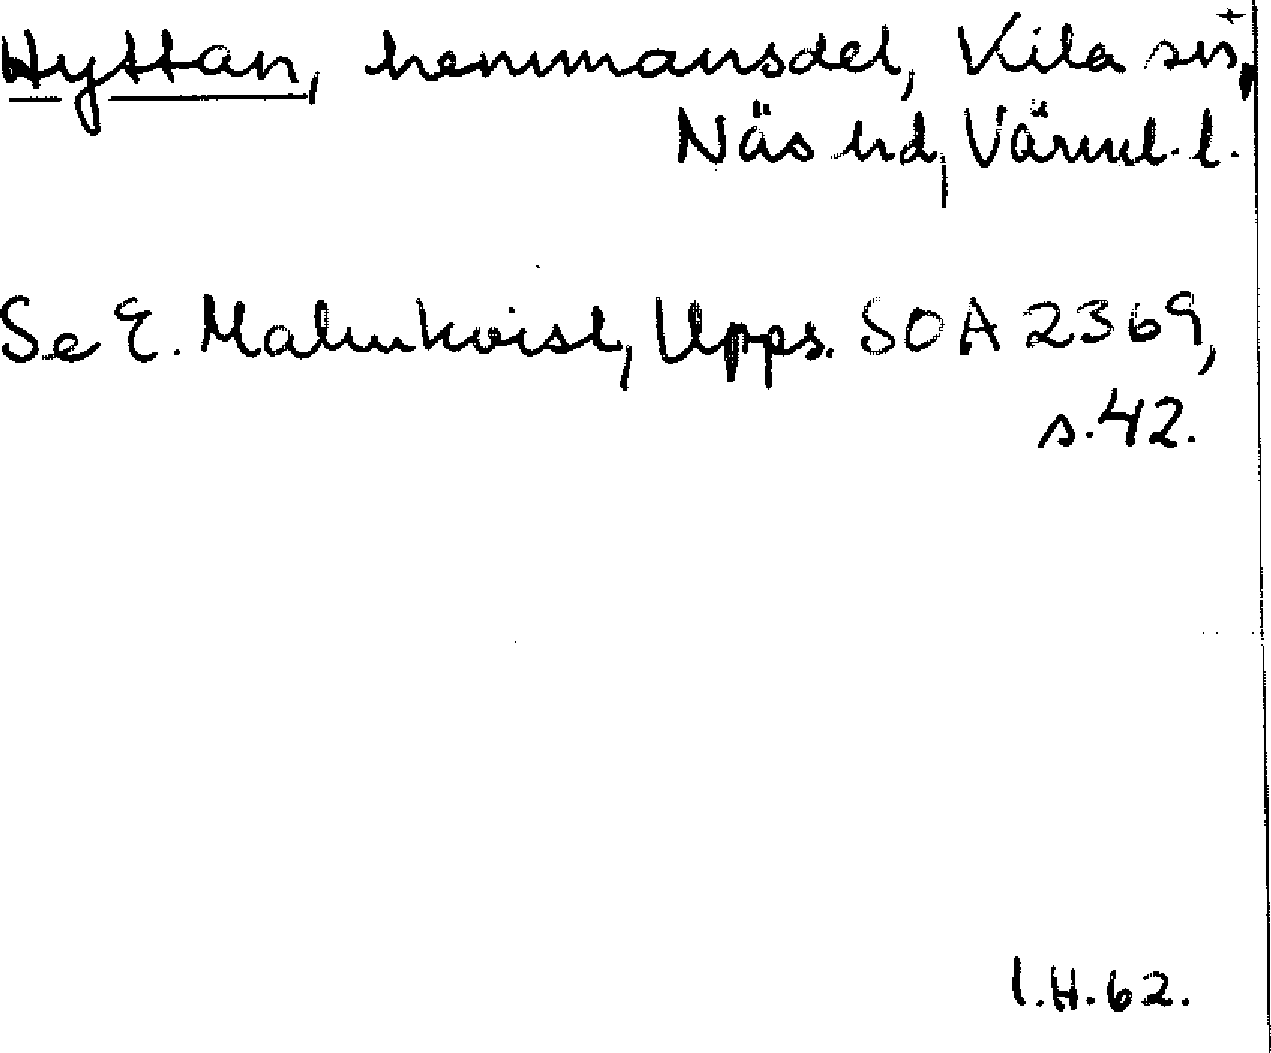 Hyttan, hemmansdel, Kila sn,
Näs hd, Värml. l.
Se E. Malmkvist, Upps. SOA 2369,
s. 42.
I.H. 62.